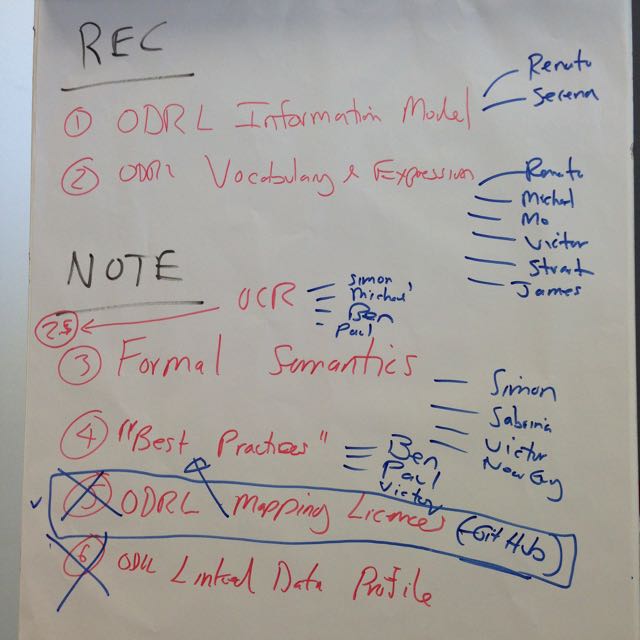 REC
Renato
Serena
① ODRL Information Model
② ODRL Vocabulary & Expression
Renato
Michael
Mo
Victor
Stuart
James
NOTE
UCR
Simon
Michael
Ben
Paul
2.5
③ Formal Semantics
Simon
Sabrina
Victor
New Guy
④ "Best Practices"
Ben
Paul
Victor
⑤ ODRL Mapping Licences (GitHub)
⑥ ODRL Linked Data Profile